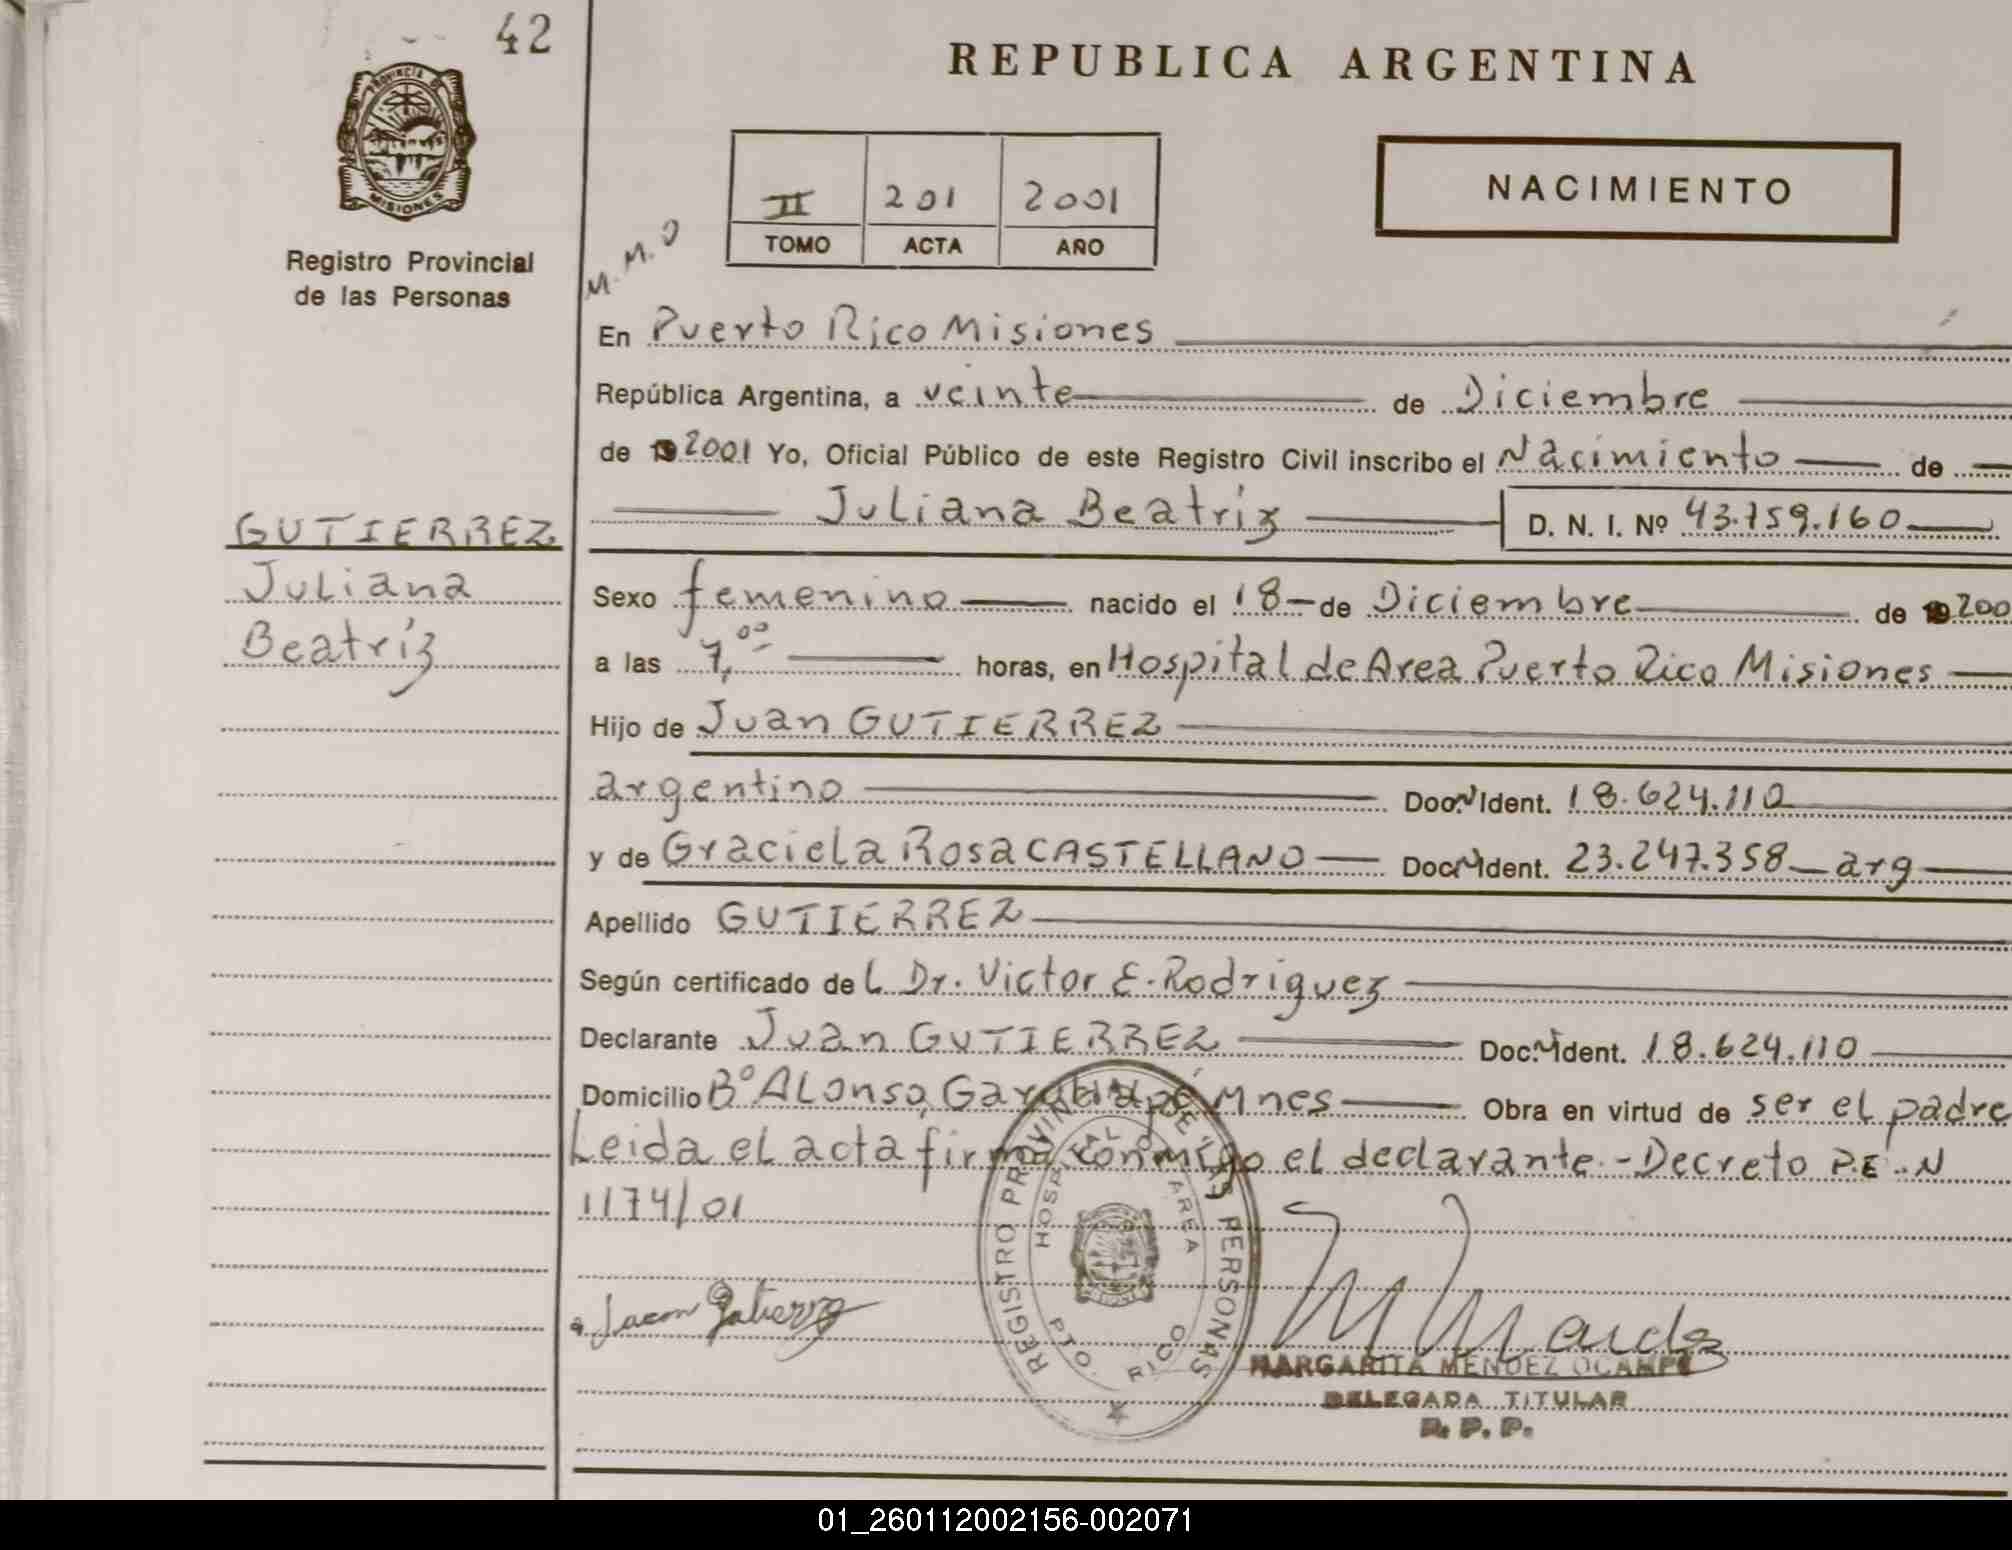 42
REPUBLICA ARGENTINA
PROVINCIA DE
MISIONES
Registro Provincial
de las Personas
II 201 2001
TOMO ACTA AÑO
NACIMIENTO
M.M.O
En Puerto Rico Misiones
República Argentina, a veinte de Diciembre
de 2001 Yo, Oficial Público de este Registro Civil inscribo el Nacimiento de
Juliana Beatríz D. N. I. Nº 43.759.160
GUTIERREZ
Juliana
Beatríz
Sexo femenino nacido el 18 - de Diciembre de 200
a las 7,00 horas, en Hospital de Area Puerto Rico Misiones
Hijo de Juan GUTIERREZ
argentino Doc. N Ident. 18.624.110
y de Graciela Rosa CASTELLANO Doc. N Ident. 23.247.358 - arg
Apellido GUTIERREZ
Según certificado de L Dr. Victor E. Rodriguez
Declarante Juan GUTIERREZ Doc. N Ident. 18.624.110
Domicilio Bº ALonso, Garuhapé Mnes Obra en virtud de ser el padre
Leida el acta firma conmigo el declarante.- Decreto P.E.N
1174/01
REGISTRO PROVINCIAL DE LAS PERSONAS
HOSPITAL DE AREA
PTO. RICO
MARGARITA MENDEZ OCAMPO
DELEGADA TITULAR
R. P. P.
01_260112002156-002071